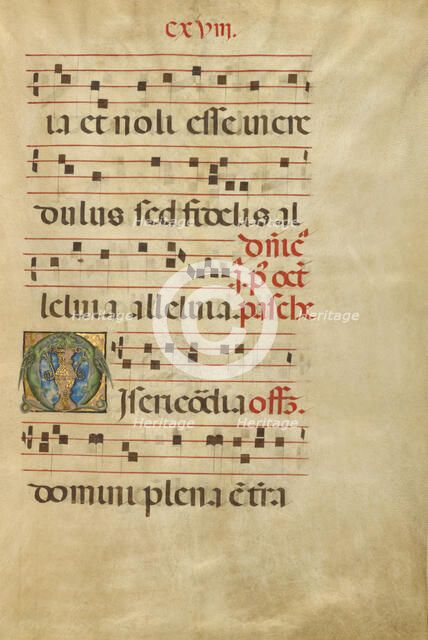 CXVIII.
ia et noli esse incre
dulus sed fidelis al
leluia alleluia.
dn̄ic̄
j. p' oct̄
pasche
Misericōdia offz.
domini plena ē tr̄a
Heritage
Heritage
Heritage
Heritage
Heritage
Heritage